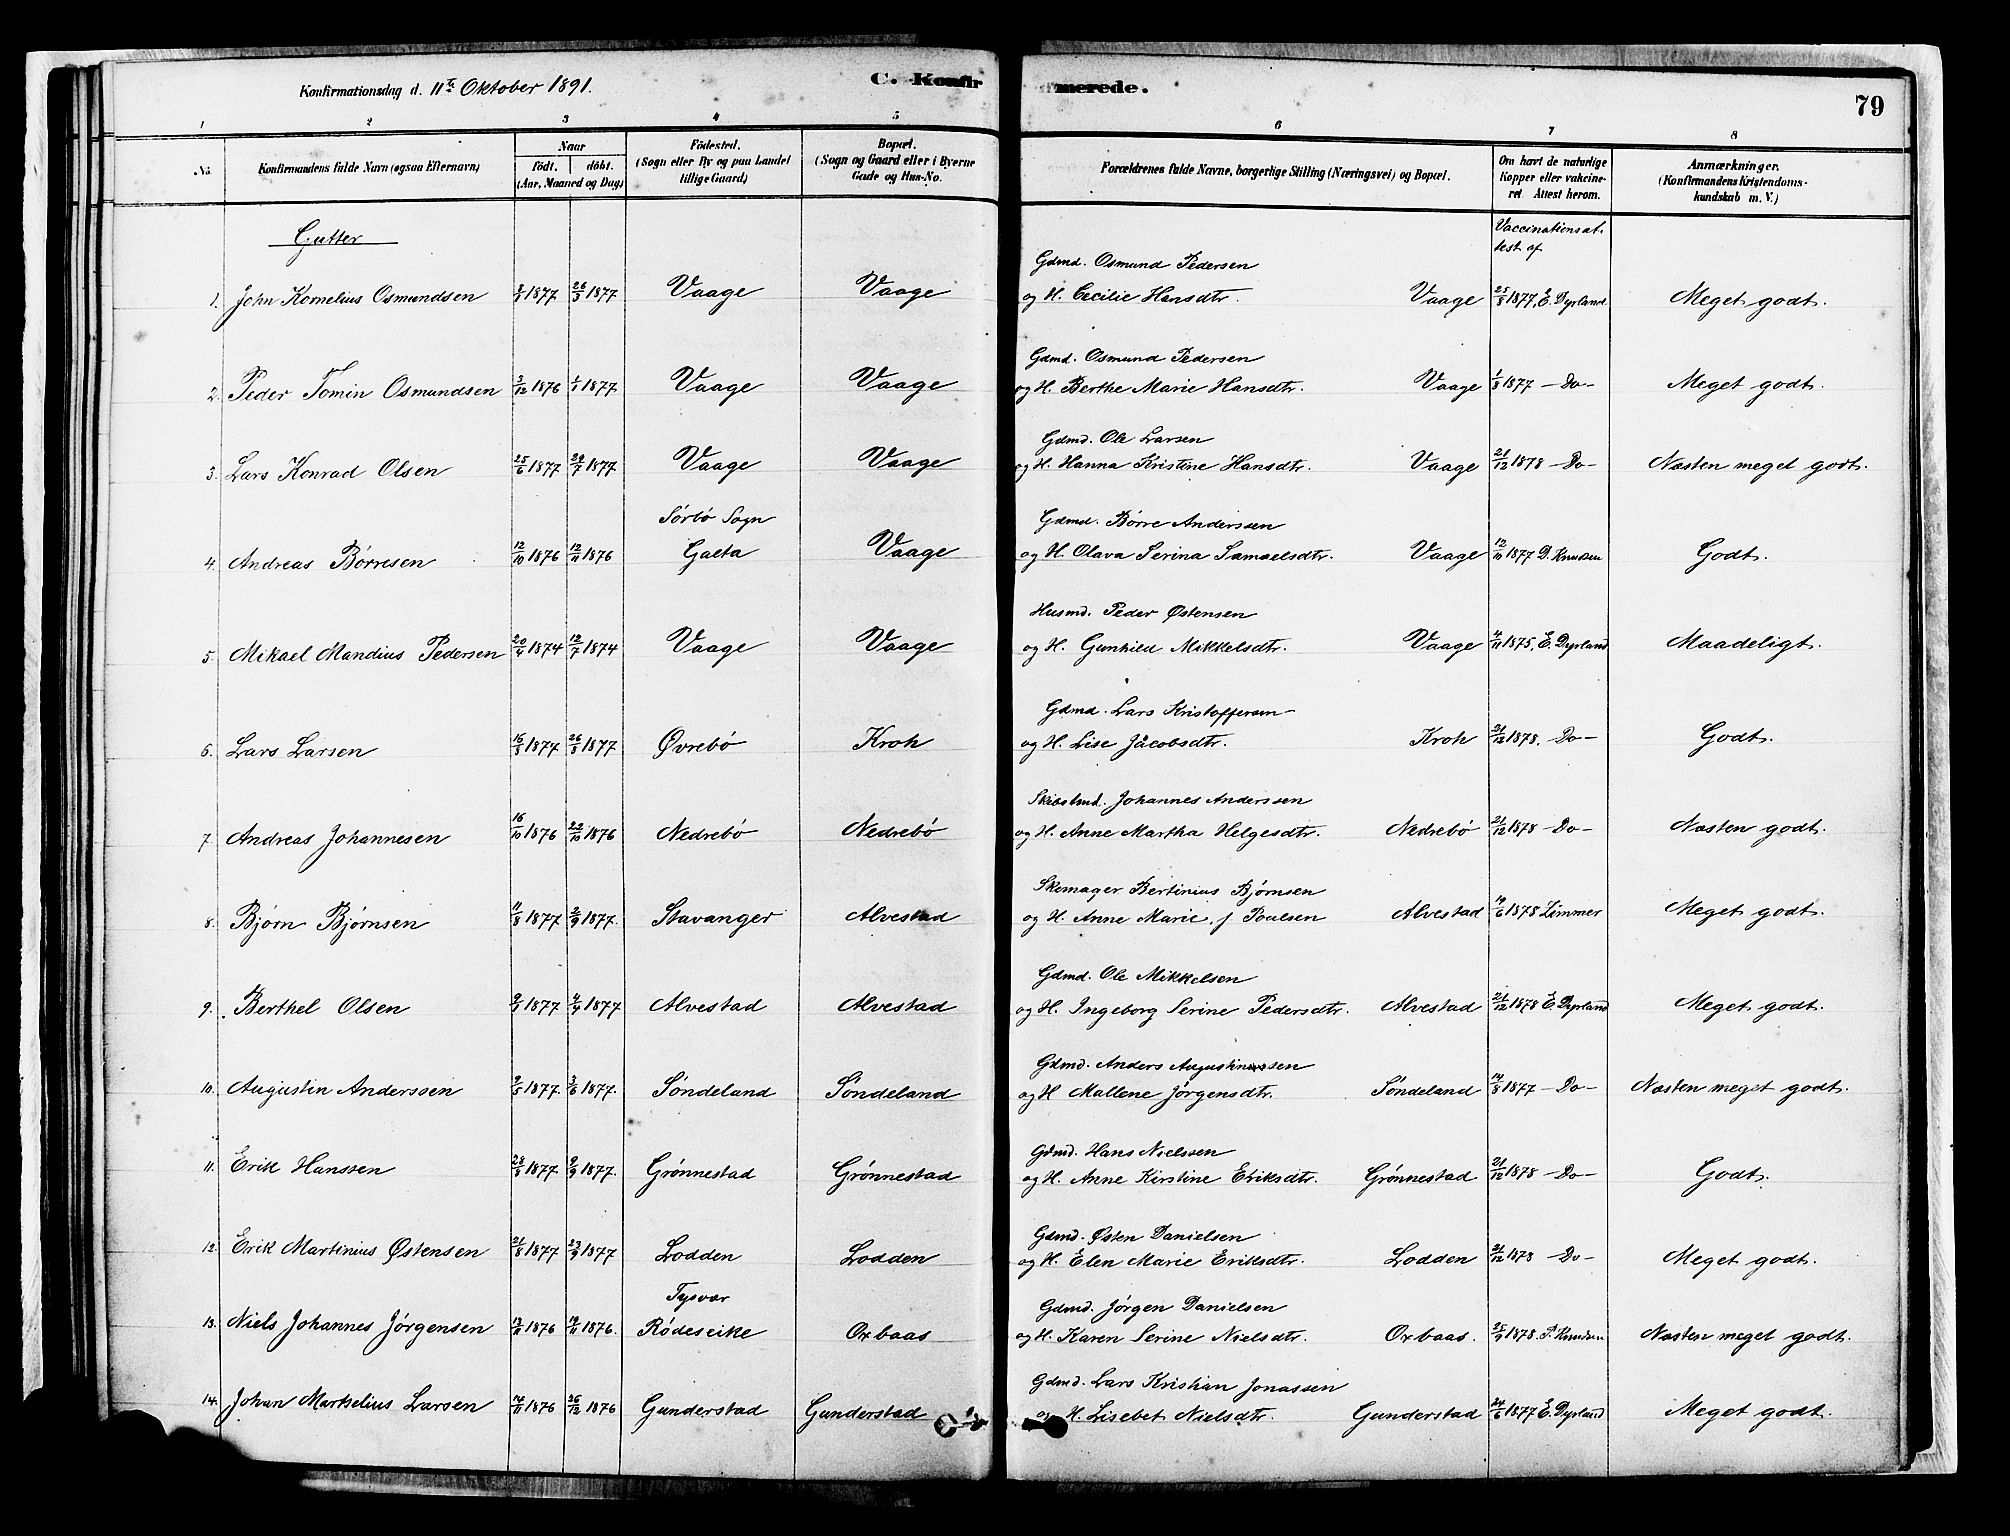 Konfirmationsdag d. 11te Oktober 1891.
C. Konfirmerede.
79
1 2 3 4 5 6 7 8
No. Konfirmandens fulde Navn (ogsaa Efternavn) Naar født. døbt. (Aar, Maaned og Dag) Fødested. (Sogn eller By og paa Landet tillige Gaard) Bopæl. (Sogn og Gaard eller i Byerne Gade og Hus-No. Forældrenes fulde Navne, borgerlige Stilling (Næringsvei) og Bopæl. Om havt de naturlige Kopper eller vakcineret. Attest herom. Anmærkninger. (Konfirmandens Kristendomskundskab m. V.)
Gutter
Vaccinationsattest af
Gdmd. Osmund Pedersen
1. John Kornelius Osmundsen 1877 26/3 1877 Vaage Vaage og H. Cecilie Hansdtr. Vaage 25/8 1877, E. Dyrland Meget godt.
Gdmd. Osmund Pedersen
2. Peder Tomin Osmundsen 3/12 1876 1/1 1877 Vaage Vaage og H. Berthe Marie Hansdtr. Vaage 1/8 1877 – Do – Meget godt.
Gdmd. Ole Larsen
3. Lars Konrad Olsen 25/6 1877 29/7 1877 Vaage Vaage og H. Hanna Kristine Hansdtr. Vaage 21/12 1878 – Do – Næsten meget godt.
Sørbø Sogn Gdmd. Børre Anderssen
4. Andreas Børresen 12/10 1876 12/11 1876 Galta Vaage og H. Olava Serina Samuelsdtr. Vaage 12/10 1877 D. Knudsen Godt.
Husmd. Peder Østensen
5. Mikael Mandius Pedersen 20/4 1874 12/7 1874 Vaage Vaage og H. Gunhild Mikkelsdtr. Vaage 4/11 1875, E. Dyrland Maadeligt.
Gdmd. Lars Kristoffersen
6. Lars Larsen 1877 26/8 1877 Øvrebø Kroh og H. Lise Jacobsdtr. Kroh 21/12 1878. – Do – Godt.
Skibstmd. Johannes Anderssen
7. Andreas Johannesen 16/10 1876 22/10 1876 Nedrebø Nedrebø og H. Anne Martha Helgesdtr. Nedrebø 21/12 1878 – Do – Næsten godt.
Skomager Bertinius Bjørnsen
8. Bjørn Bjørnsen 11/8 1877 2/9 1877. Stavanger Alvestad og H. Anne Marie, f. Poulsen Alvestad 14/6 1878 Zimmer Meget godt.
Gdmd. Ole Mikkelsen
9. Berthel Olsen 1877 2/4 1877 Alvestad Alvestad og H. Ingeborg Serine Pedersdtr. Alvestad 21/12 1878 E. Dyrland Meget godt.
Gdmd. Anders Augustinussen
10. Augustin Anderssen 9/5 1877. 3/6 1877. Søndeland Søndeland og H Mallene Jørgensdtr. Søndeland 14/8 1877 – Do – Næsten meget godt.
Gdmd. Hans Nielssen
11. Erik Hanssen 28/8 1877 9/9 1877. Grønnestad Grønnestad og H. Anne Kirstine Eriksdtr. Grønnestad 21/12 1878 – Do – Godt.
Gdmd. Østen Danielsen
12. Erik Martinius Østensen 21/8 1877 23/9 1877 Lodden Lodden og H. Elen Marie Eriksdtr. Lodden 21/12 1878 – Do – Meget godt.
Tysvær Gdmd. Jørgen Danielsen
13. Niels Johannes Jørgensen 1876 19/11 1876. Rødeseike Oxbaas og H. Karen Serine Nielsdtr. Oxbaas. 25/9 1878. Knudsen Næsten meget godt.
Gdmd. Lars Kristian Jonassen
14. Johan Martselius Larsen 14/11 1876 26/12 1876 Gunderstad Gunderstad og H. Lisebet Nielsdtr. Gunderstad 24/6 1877 E. Dyrland Meget godt.